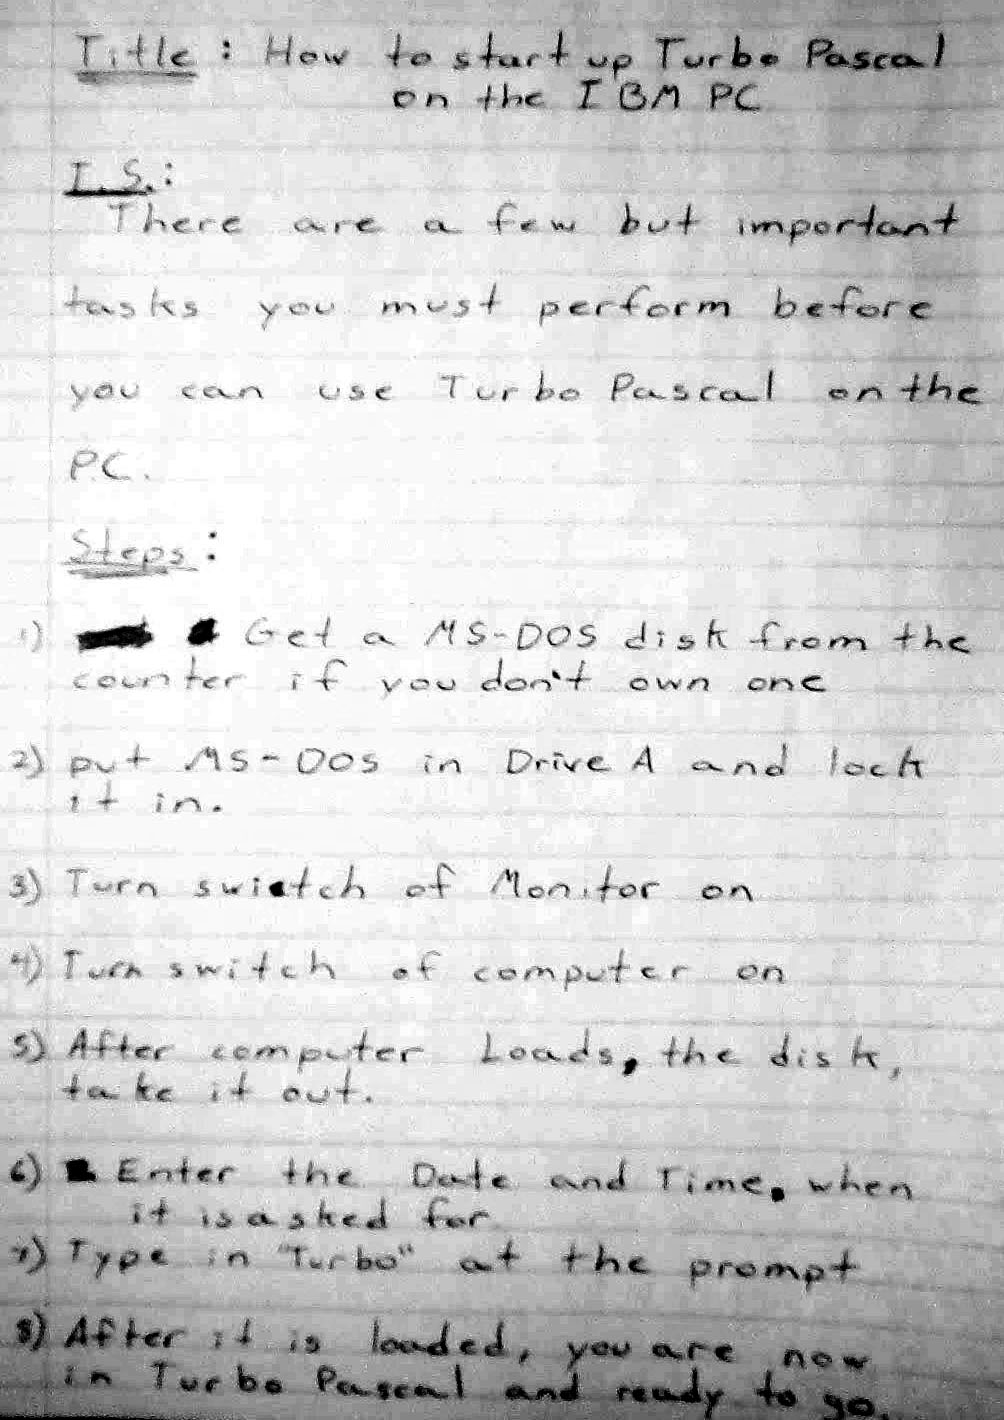 Title : How to start up Turbo Pascal
on the IBM PC
I.S.:
There are a few but important
tasks you must perform before
you can use Turbo Pascal on the
PC.
Steps :
1) Get a MS-DOS disk from the
counter if you don't own one
2) put MS-DOS in Drive A and lock
it in.
3) Turn switch of Monitor on
4) Turn switch of computer on
5) After computer Loads, the disk,
take it out.
6) Enter the Date and Time, when
it is asked for
7) Type in "Turbo" at the prompt
8) After it is loaded, you are now
in Turbo Pascal and ready to go.